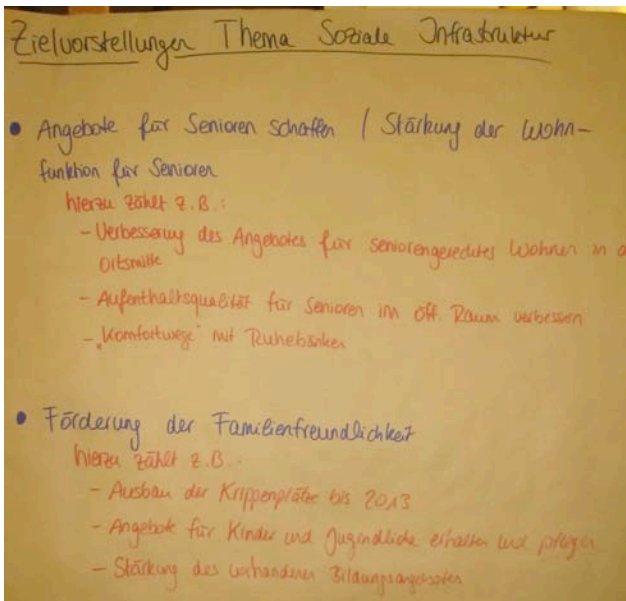 Zielvorstellungen Thema Soziale Infrastruktur
• Angebote für Senioren schaffen / Stärkung der Wohn-
funktion für Senioren
hierzu zählt z.B.:
- Verbesserung des Angebotes für seniorengerechtes Wohnen in d
Ortsmitte
- Aufenthaltsqualität für Senioren im öff. Raum verbessern
- „Komfortwege" mit Ruhebänken
• Förderung der Familienfreundlichkeit
hierzu zählt z.B.:
- Ausbau der Krippenplätze bis 2013
- Angebote für Kinder und Jugendliche erhalten und pflegen
- Stärkung des vorhandenen Bildungsangebotes